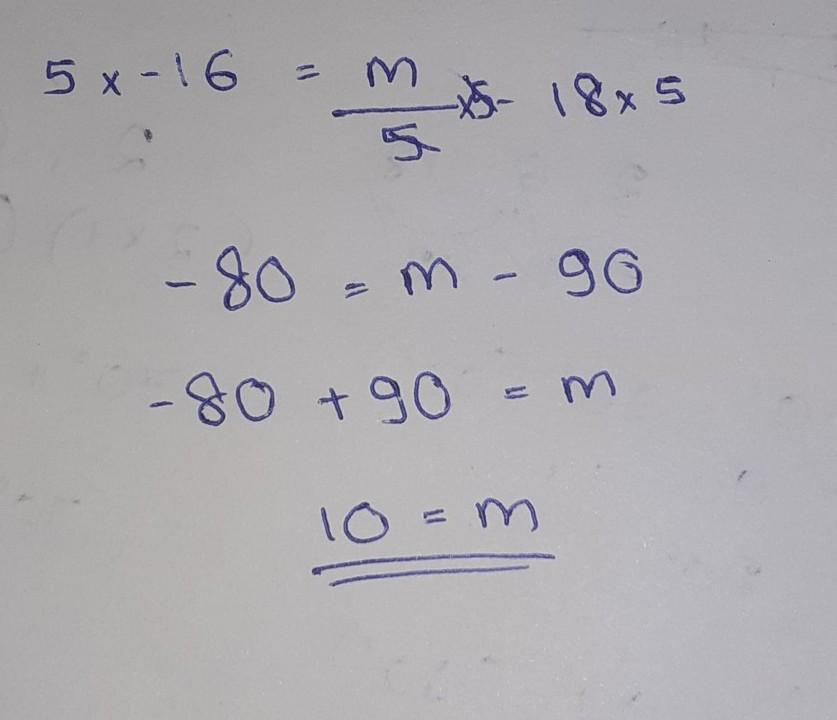 5 x -16 = m/5 x5 - 18 x 5
-80 = m - 90
-80 + 90 = m
10 = m